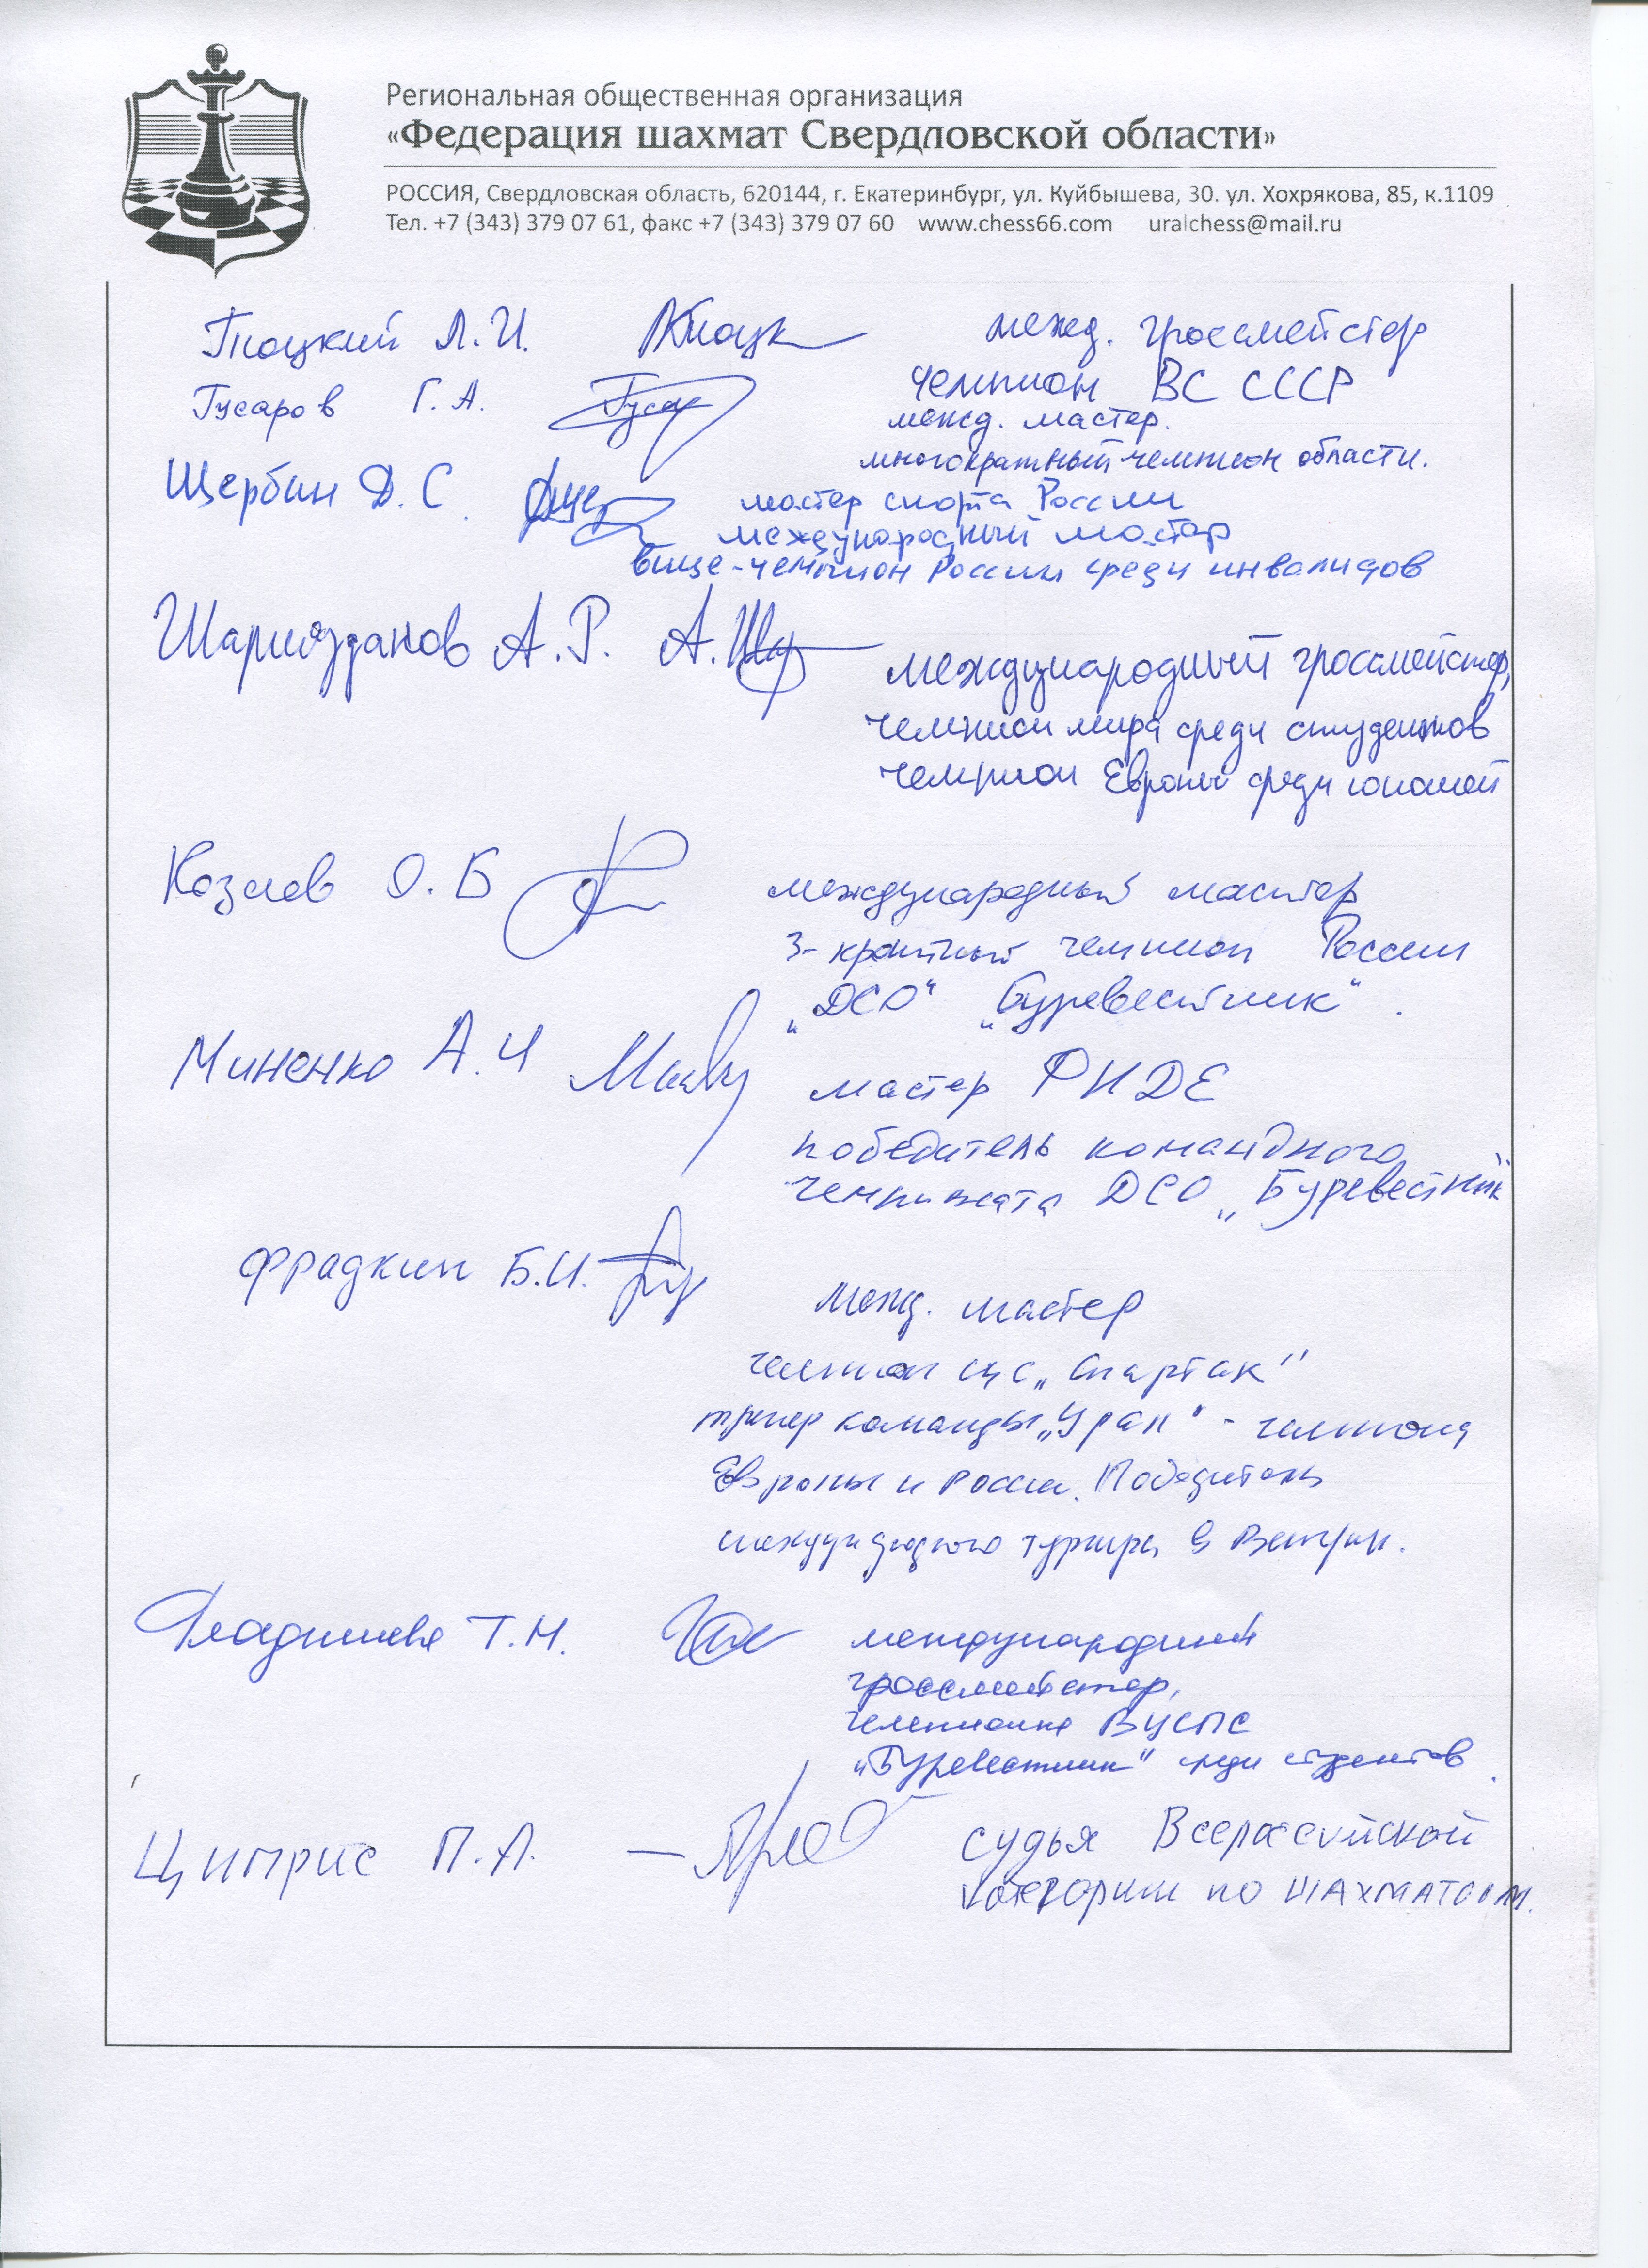 Региональная общественная организация
«Федерация шахмат Свердловской области»
РОССИЯ, Свердловская область, 620144, г. Екатеринбург, ул. Куйбышева, 30. ул. Хохрякова, 85, к.1109
Тел. +7 (343) 379 07 61, факс +7 (343) 379 07 60 www.chess66.com uralchess@mail.ru
Тоцкий Л.И. межд. гроссмейстер
чемпион ВС СССР
Гусаров Г.А.
межд. мастер.
многократный чемпион области.
Щербин Д.С. мастер спорта России
международный мастер
вице-чемпион России среди инвалидов
Шариязданов А.Р. международный гроссмейстер,
чемпион мира среди студентов
чемпион Европы среди юношей
Козлов О.Б международный мастер
3-кратный чемпион России
"ДСО" „Буревестник".
Миненко А.И мастер ФИДЕ
победитель командного
чемпионата ДСО „Буревестник"
Фрадкин Б.И.
межд. мастер
чемпион ЦС „Спартак"
тренер команды „Урал" - чемпиона
Европы и России. Победитель
международного турнира в Венгрии.
Т.Н. международный
гроссмейстер,
чемпионка ВЦСПС
"Буревестник" среди студентов.
Циприс П.А. — судья Всероссийской
категории по шахматам.